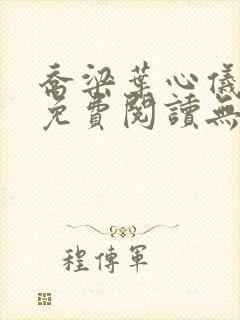 喬梁葉心儀
免費閱讀無
程傳軍